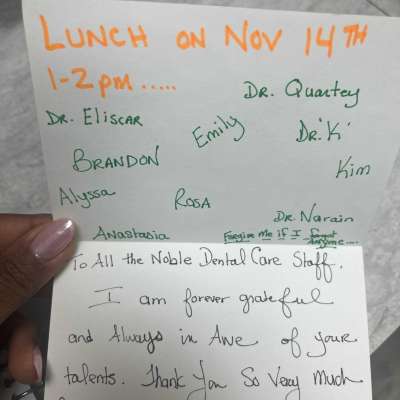 LUNCH ON NOV 14TH
1-2pm.....
DR. Quartey
DR. ELISCAR
Emily
DR. 'K'
BRANDON
Kim
Alyssa
ROSA
DR. Narain
Anastasia
Forgive me if I forgot
anyone....
To All the Noble Dental Care Staff.
I am forever grateful
and Always in Awe of your
talents. Thank You So Very Much